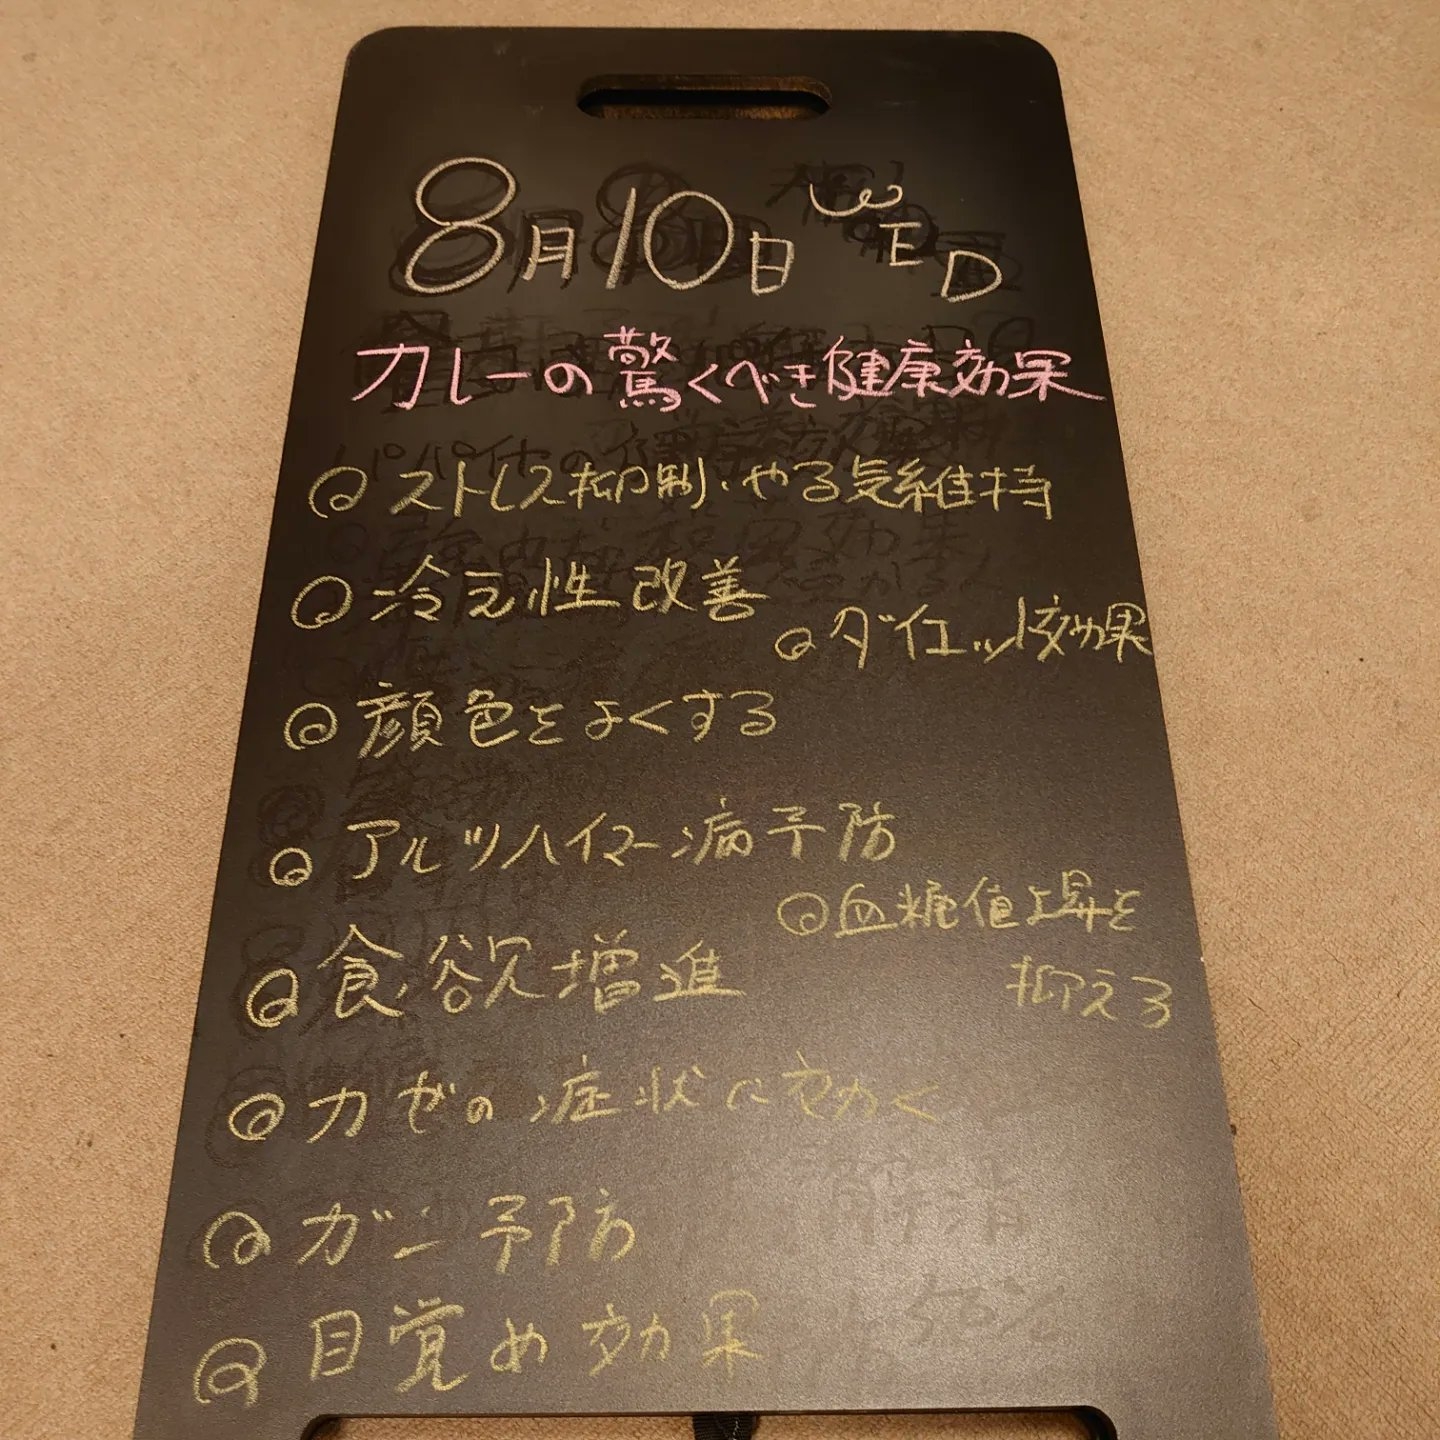 8月10日 WED
カレーの驚くべき健康効果
◎ストレス抑制・やる気維持
◎冷え性改善
◎ダイエット効果
◎顔色をよくする
◎アルツハイマー病予防
◎血糖値上昇を
抑える
◎食欲増進
◎カゼの症状に効く
◎ガン予防
◎目覚め効果